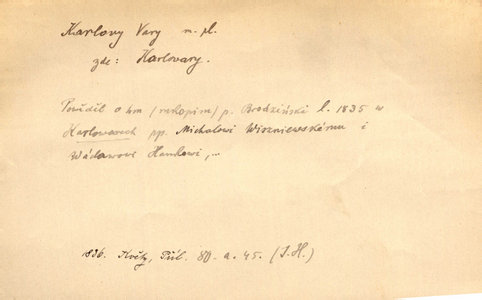 Karlovy Vary m. pl.
zde: Karlovary.
o tom (rukopisu) p. Brodziński l. 1835 w
Karlovarech pp. Michalowi Wiszniewskému i
Wáclawowi Hankowi,...
1836. Květy, Příl. 80. a. 45. (J.H.)